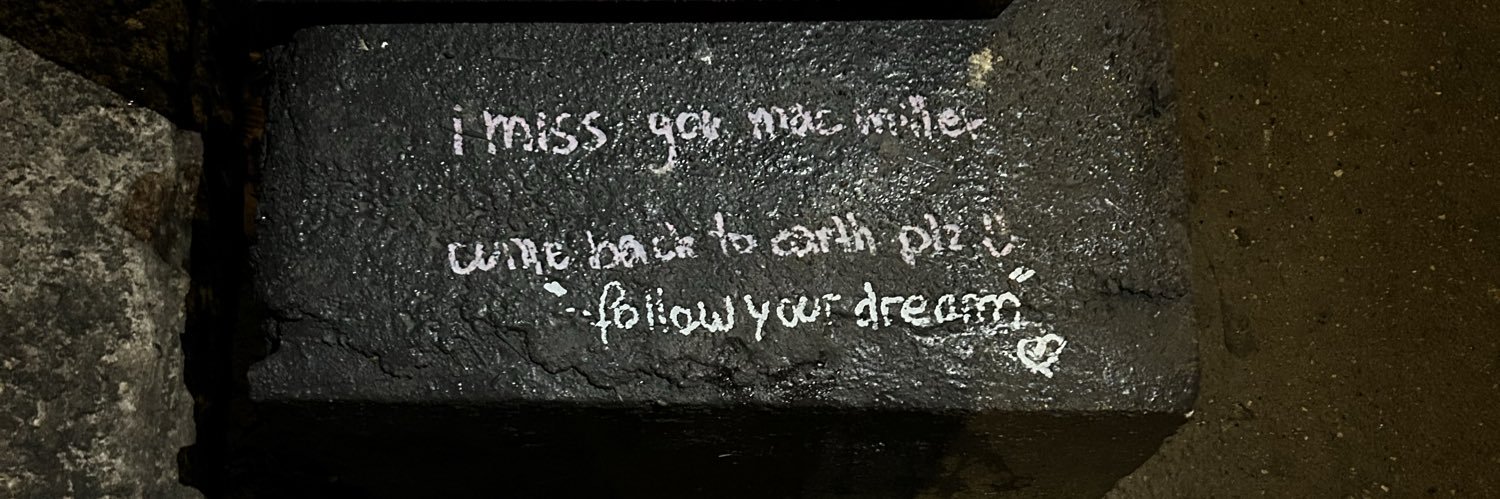 i miss you mac miller
come back to earth plz :)
"..follow your dream"